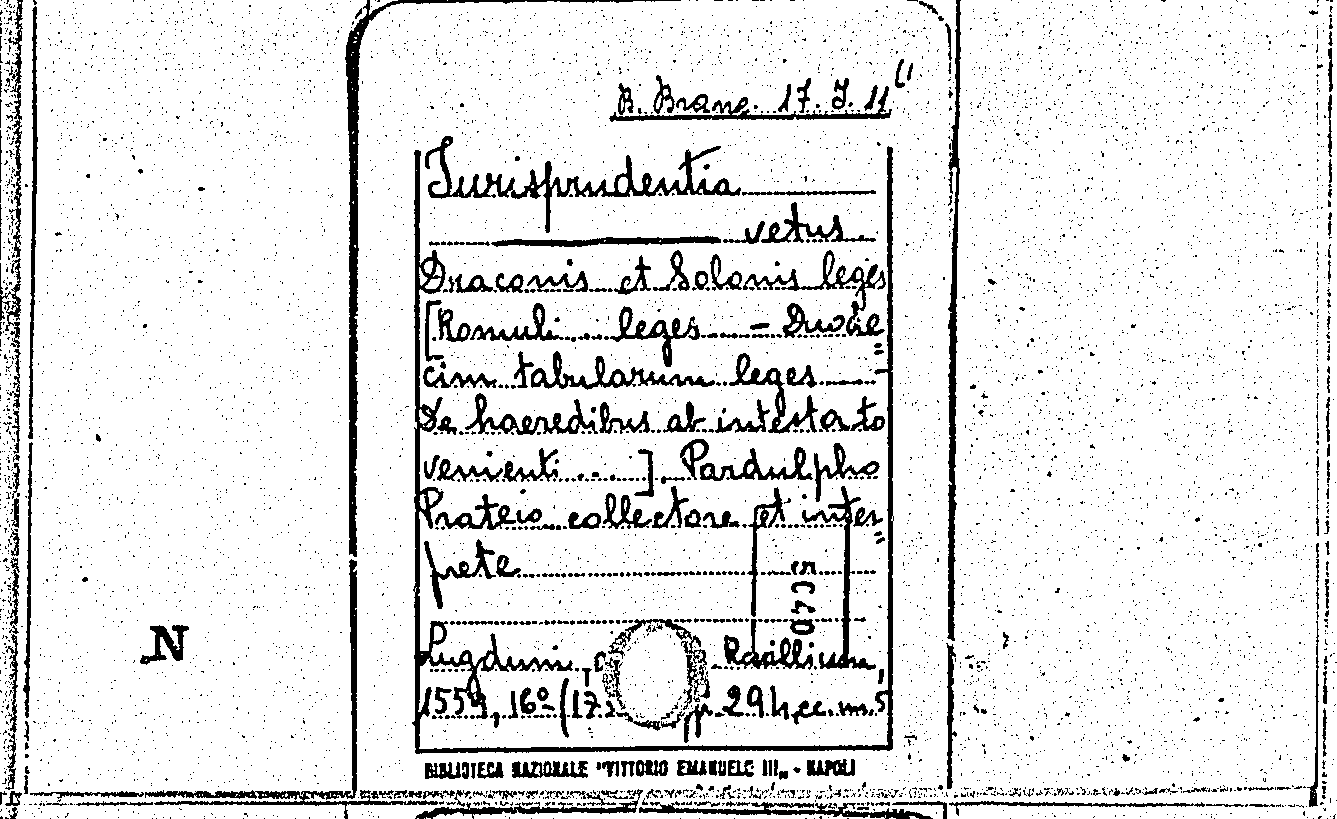 B. Branc. 17. J. 11
Jurisprudentia
vetus.
Draconis et Solonis leges
[Romuli... leges — Duode
cim tabularum leges —
De haeredibus ab intestato
venienti...]. Pardulpho
Prateio collectore et inter
prete
0473
Lugduni, Rovillium,
1559, 16º (17 pp. 291, cc. m. 5
BIBLIOTECA NAZIONALE "VITTORIO EMANUELE III„ - NAPOLI
N